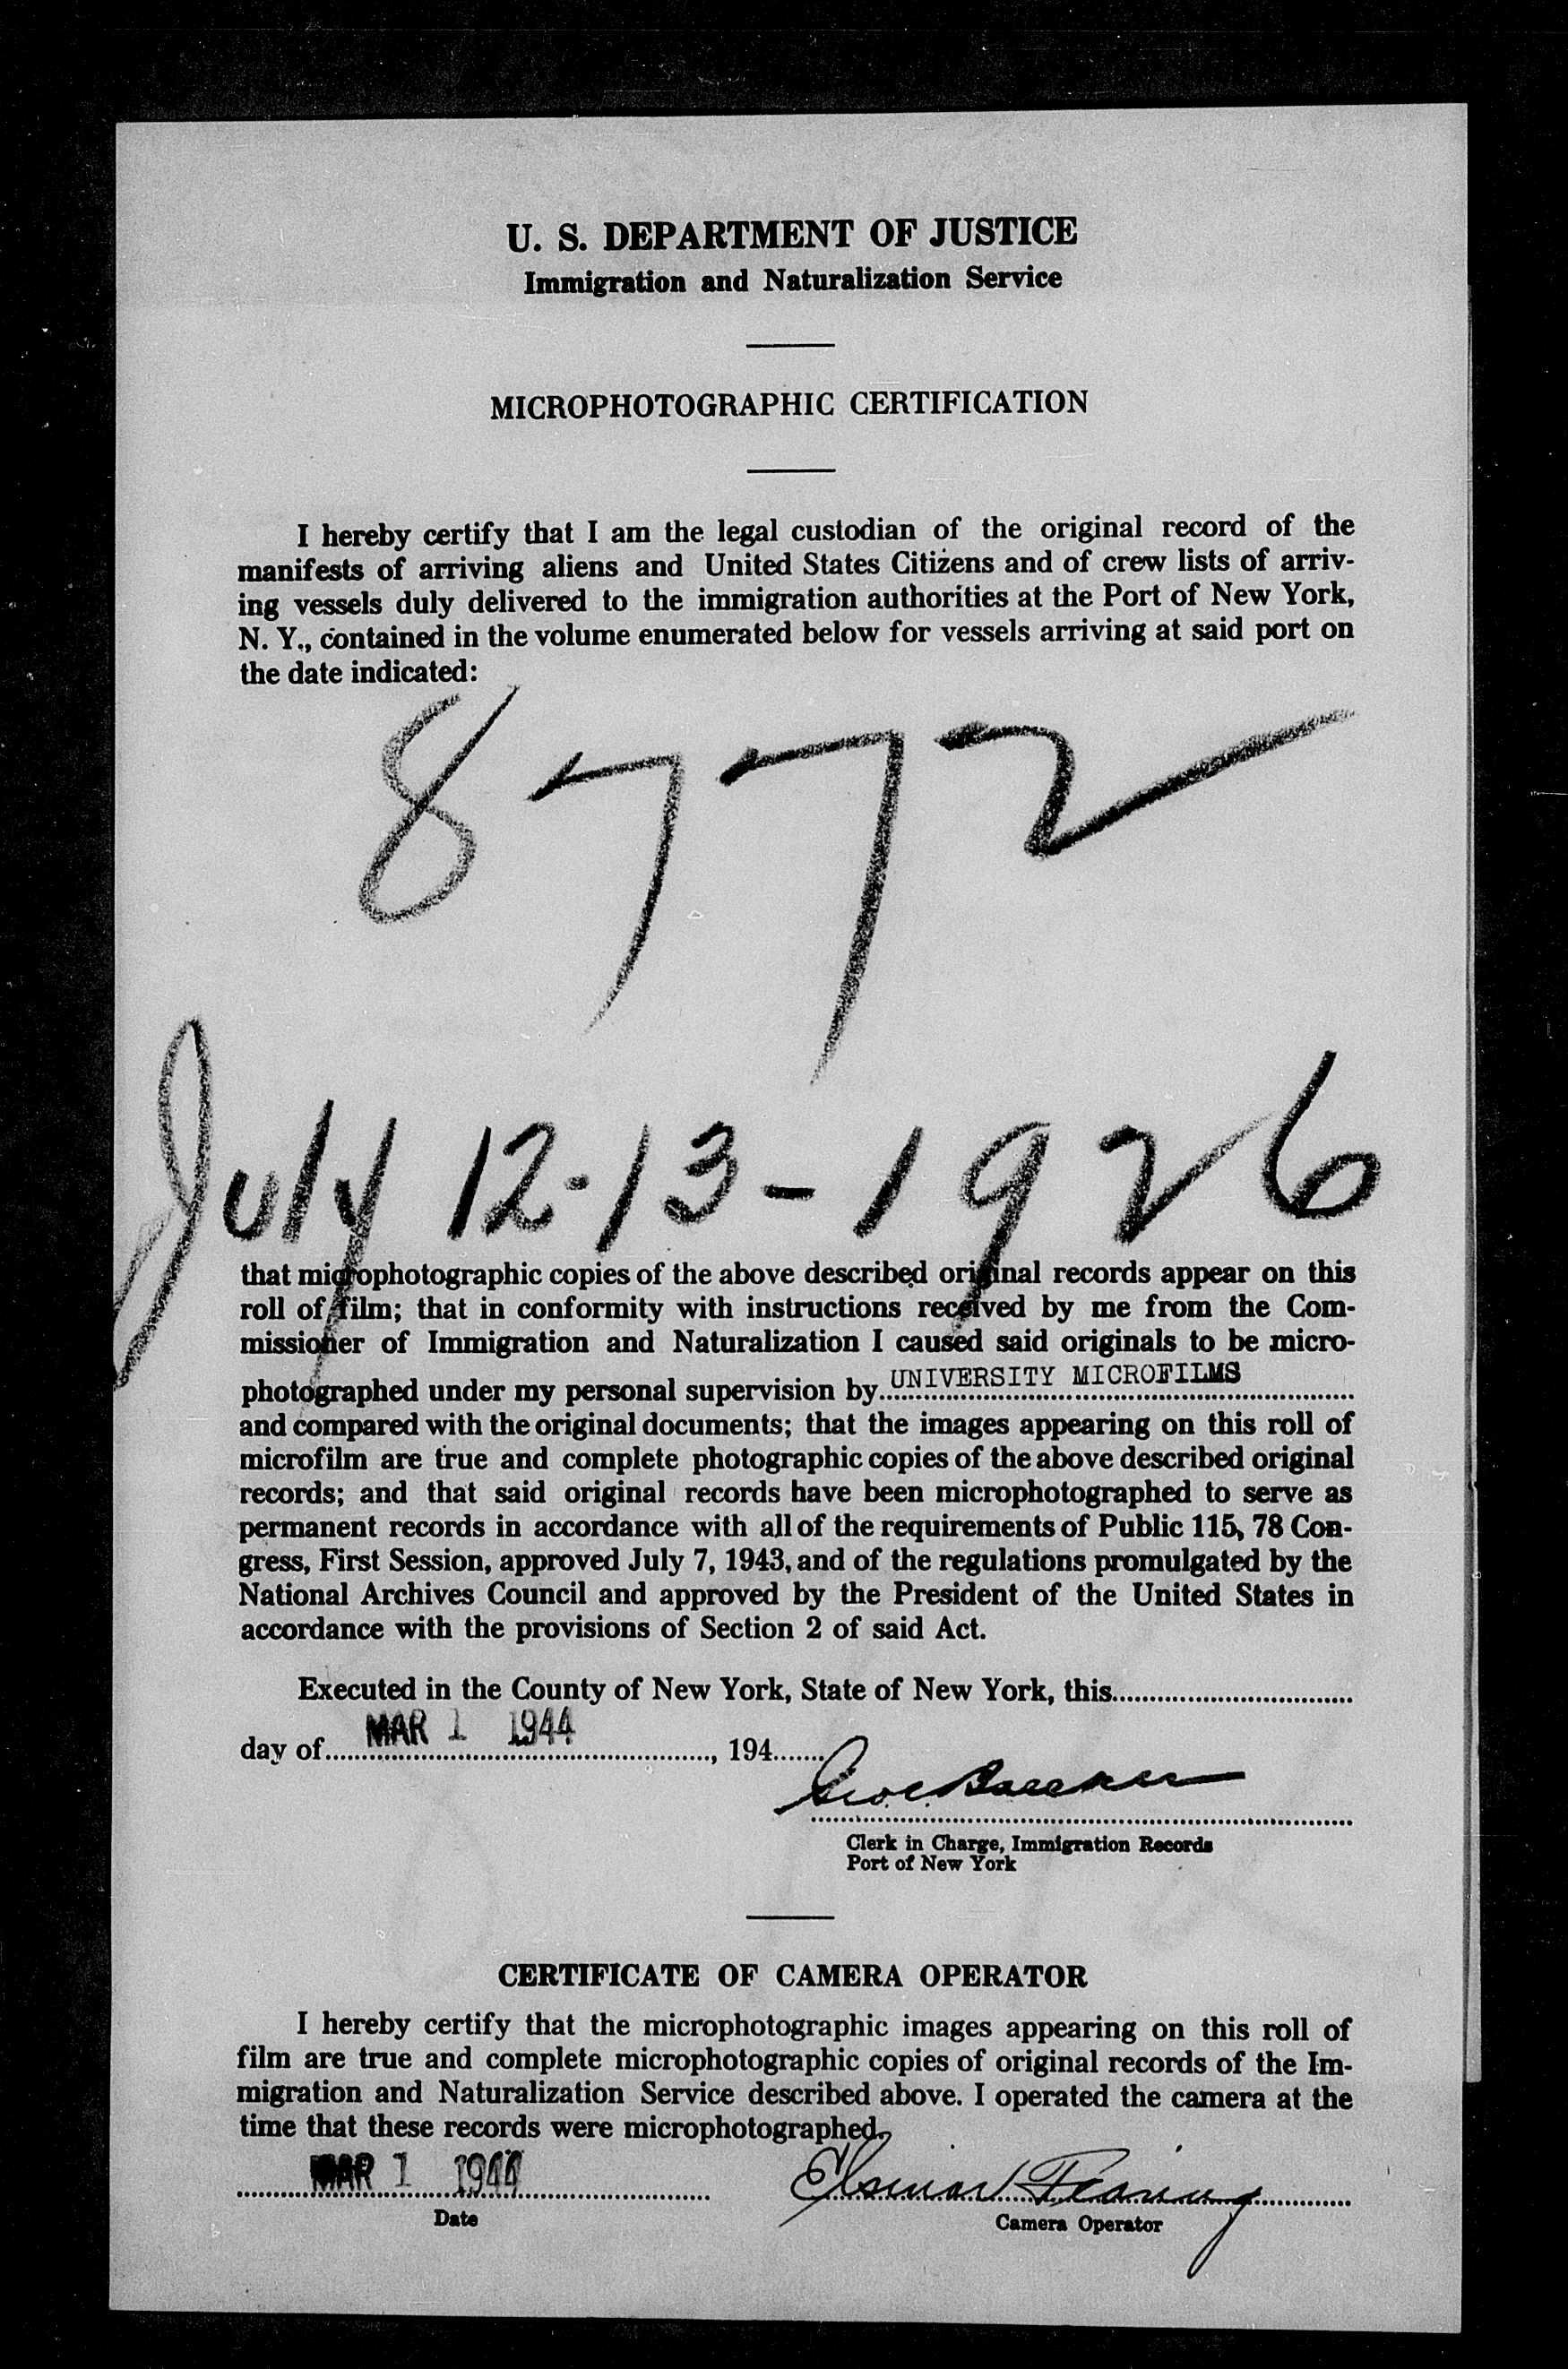 U. S. DEPARTMENT OF JUSTICE
Immigration and Naturalization Service
MICROPHOTOGRAPHIC CERTIFICATION
I hereby certify that I am the legal custodian of the original record of the
manifests of arriving aliens and United States Citizens and of crew lists of arriv-
ing vessels duly delivered to the immigration authorities at the Port of New York,
N. Y., contained in the volume enumerated below for vessels arriving at said port on
the date indicated:
8772
July 12-13-1926
that microphotographic copies of the above described original records appear on this
roll of film; that in conformity with instructions received by me from the Com-
missioner of Immigration and Naturalization I caused said originals to be micro-
photographed under my personal supervision by UNIVERSITY MICROFILMS
and compared with the original documents; that the images appearing on this roll of
microfilm are true and complete photographic copies of the above described original
records; and that said original records have been microphotographed to serve as
permanent records in accordance with all of the requirements of Public 115, 78 Con-
gress, First Session, approved July 7, 1943, and of the regulations promulgated by the
National Archives Council and approved by the President of the United States in
accordance with the provisions of Section 2 of said Act.
Executed in the County of New York, State of New York, this
day of MAR 1 1944, 194
Clerk in Charge, Immigration Records
Port of New York
CERTIFICATE OF CAMERA OPERATOR
I hereby certify that the microphotographic images appearing on this roll of
film are true and complete microphotographic copies of original records of the Im-
migration and Naturalization Service described above. I operated the camera at the
time that these records were microphotographed.
MAR 1 1944
Date
Camera Operator